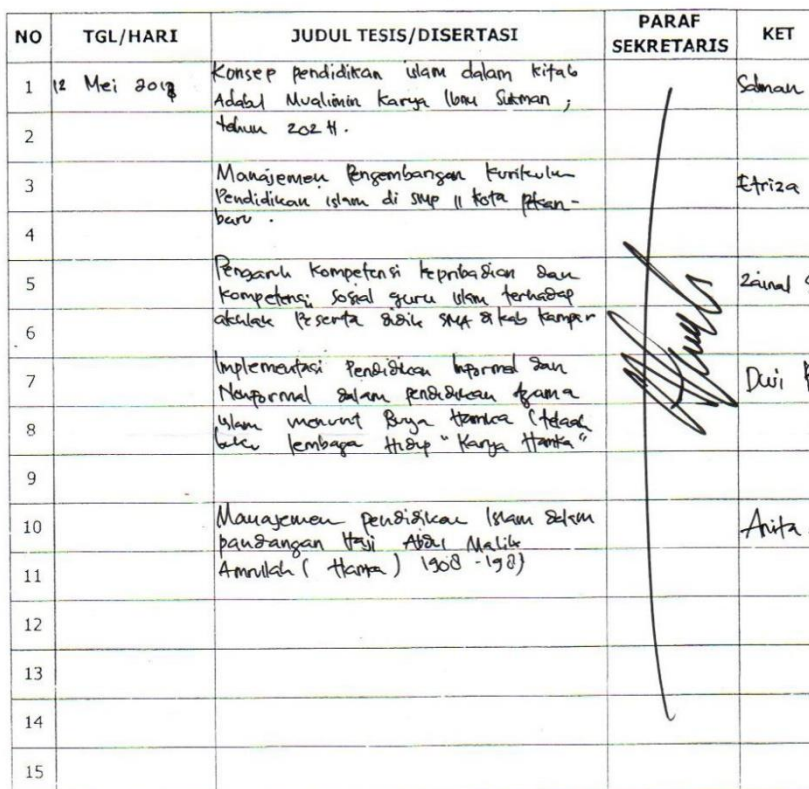 NO TGL/HARI JUDUL TESIS/DISERTASI PARAF SEKRETARIS KET
1 12 Mei Konsep pendidikan islam dalam kitab Salman
Adabul Mualimin Karya Ibnu ;
2 tahun 202 H.
3 Manajemen Pengembangan kurikulum Efriza
Pendidikan islam di SMP 11 kota
4 baru.
5 Pengaruh kompetensi kepribadian dan Zainal
kompetensi sosial guru islam terhadap
6 akhlak Peserta didik SMA di kab kampar
7 Implementasi Pendidikan Informal dan Dwi
Nonformal dalam pendidikan Agama
8 islam menurut Buya Hamka (telaah
buku lembaga Hidup "Karya Hamka"
9
10 Manajemen pendidikan Islam dalam Anita
pandangan Haji Abdul Malik
11 Amrullah (Hamka) 1908 -
12
13
14
15